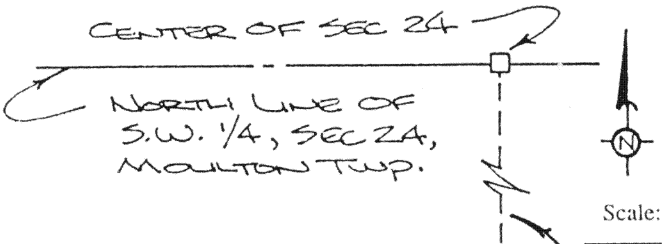 CENTER OF SEC 24
NORTH LINE OF
S.W. 1/4, SEC 24,
MOULTON TWP.
N
Scale: